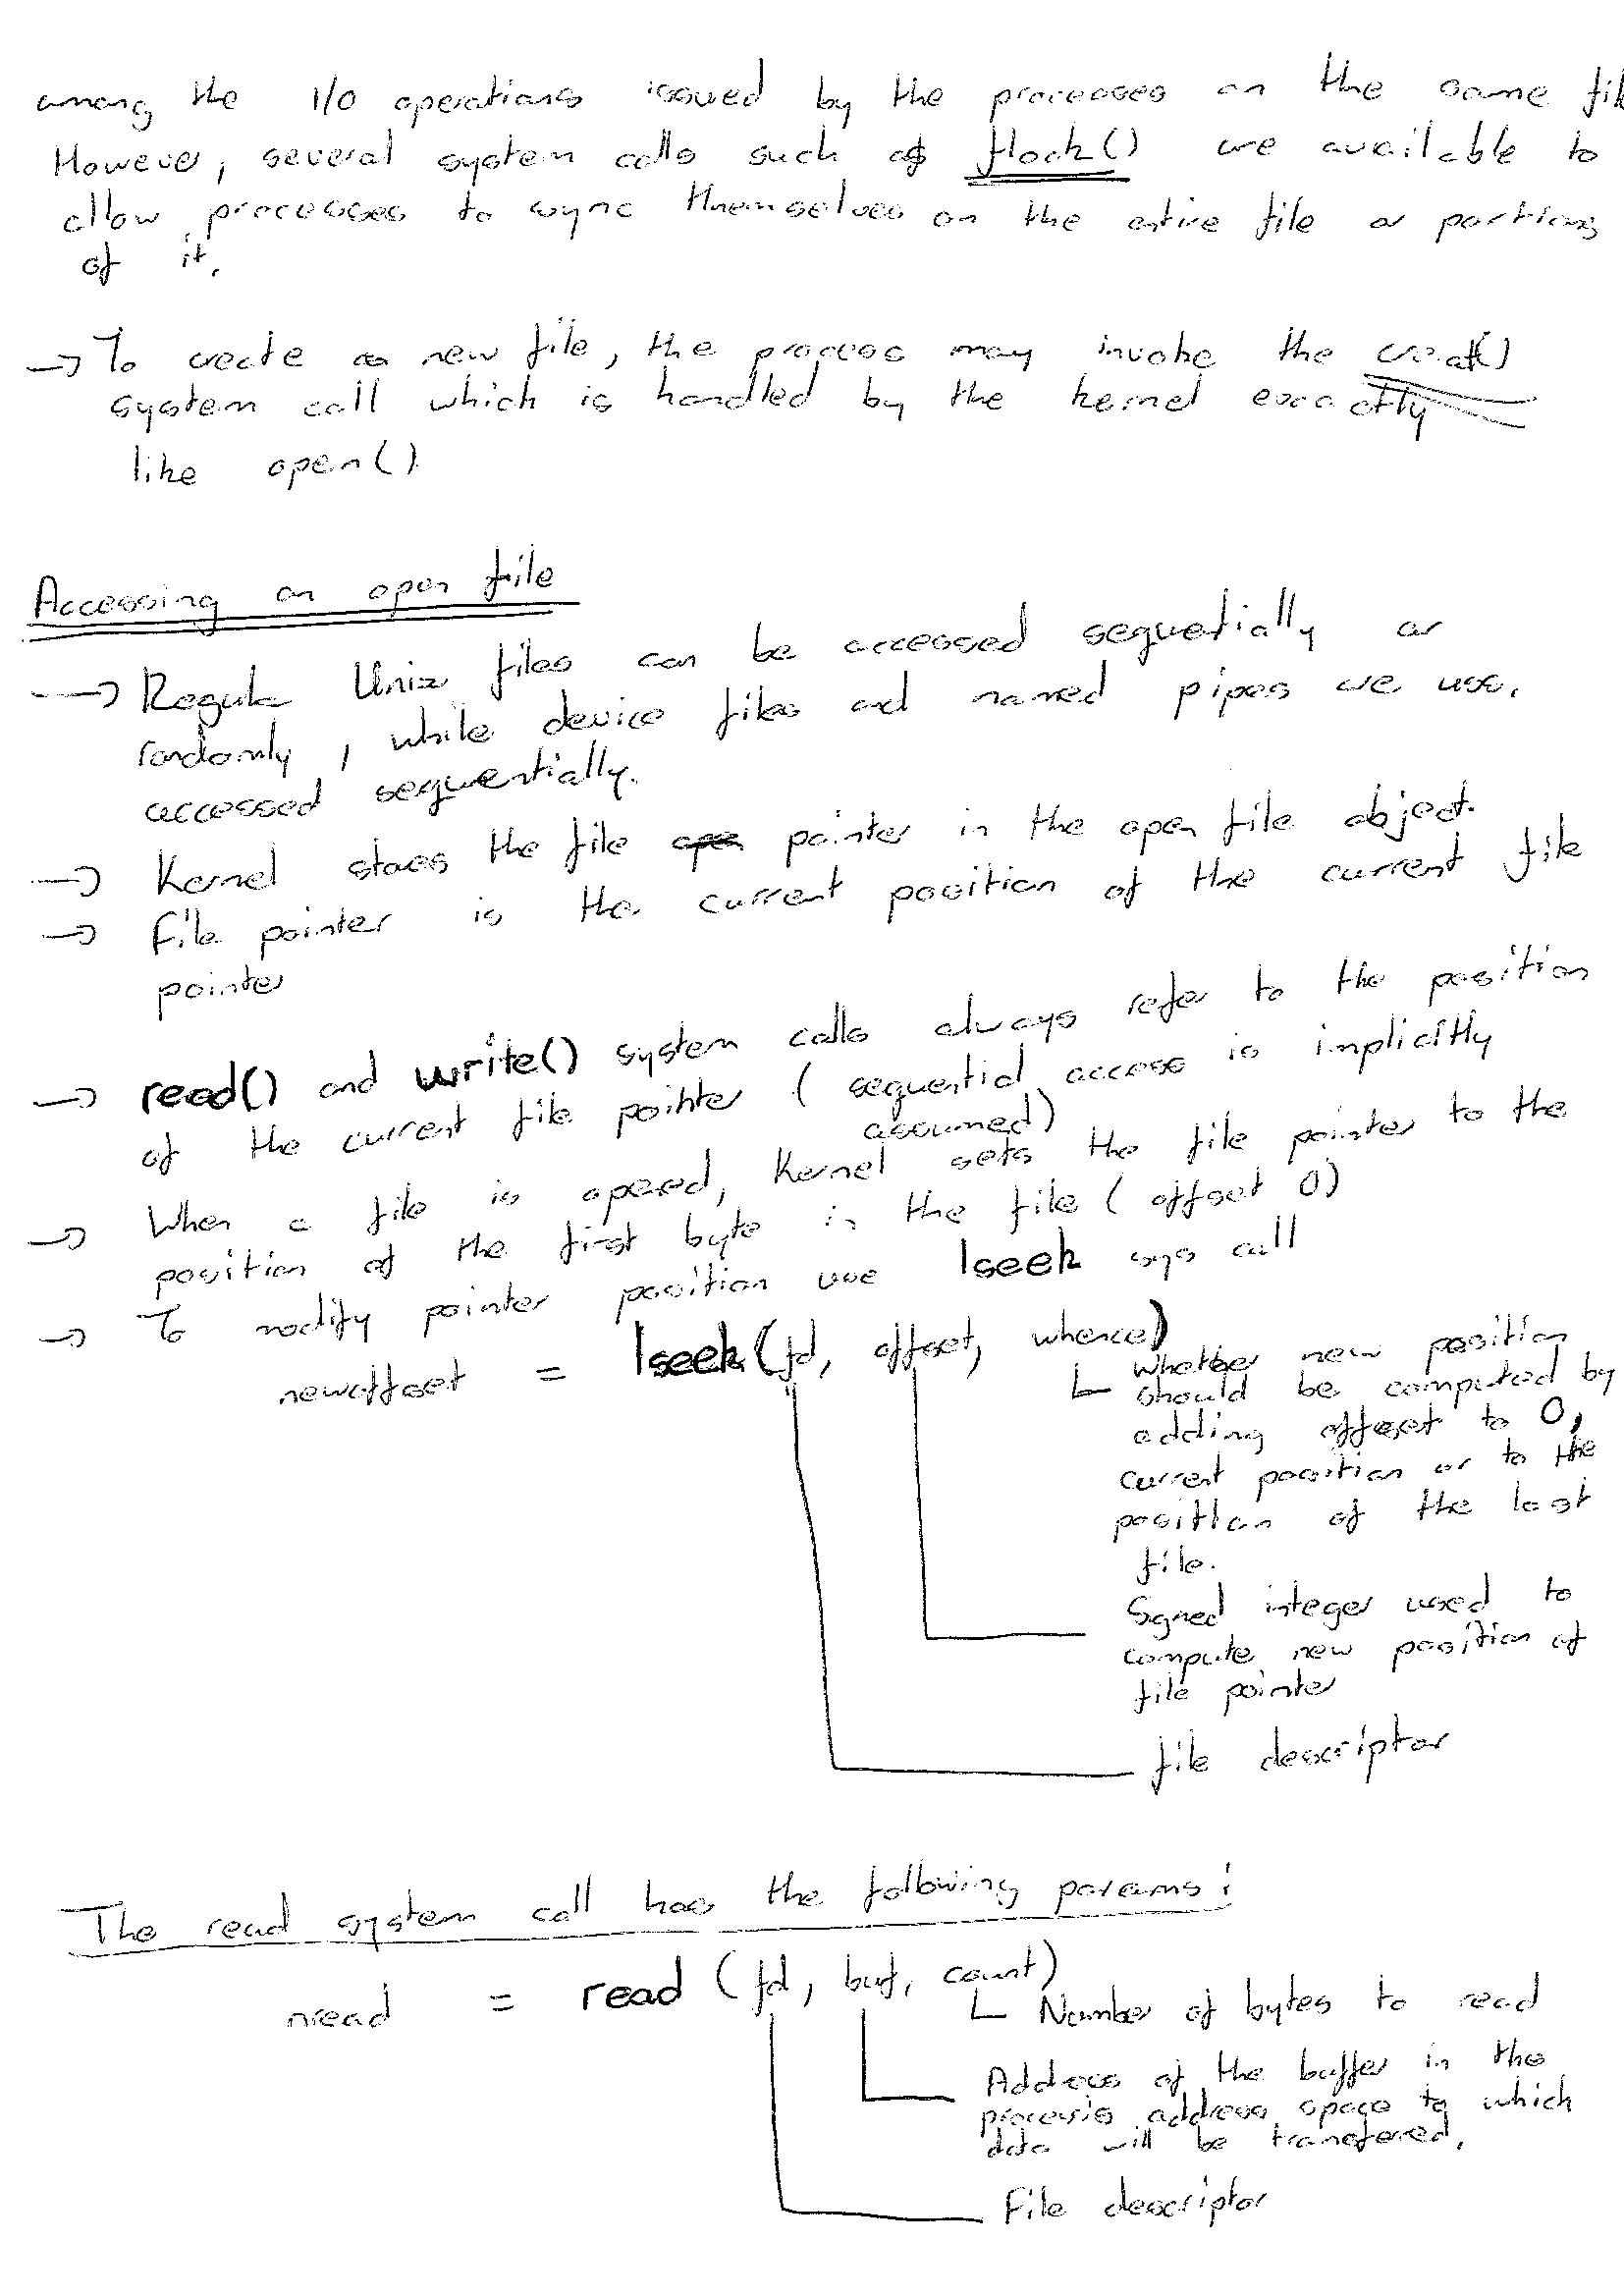 among the I/O operations issued by the processes on the same fil
However, several system calls such as flock() are available to
allow processes to sync themselves on the entire file or portions
of it.
→ To create a new file, the process may invoke the creat()
system call which is handled by the kernel exactly
like open()
Accessing an open file
→ Regular Unix files can be accessed sequentially or
randomly, while device files and named pipes are use.
accessed sequentially.
→ Kernel stores the file pointer in the open file object.
→ File pointer is the current position of the current file
pointer
→ read() and write() system calls always refer to the position
of the current file pointer (sequential access is implicitly
assumed)
→ When a file is opened, Kernel sets the file pointer to the
position of the first byte in the file (offset 0)
→ To modify pointer position use lseek sys call
newoffset = lseek(fd, offset, whence)
Whether new position
should be computed by
adding offset to 0,
current position or to the
position of the last
file.
Signed integer used to
compute new position of
file pointer
file descriptor
The read system call has the following params:
nread = read (fd, buf, count)
Number of bytes to read
Address of the buffer in the
process's address space to which
data will be transferred.
File descriptor